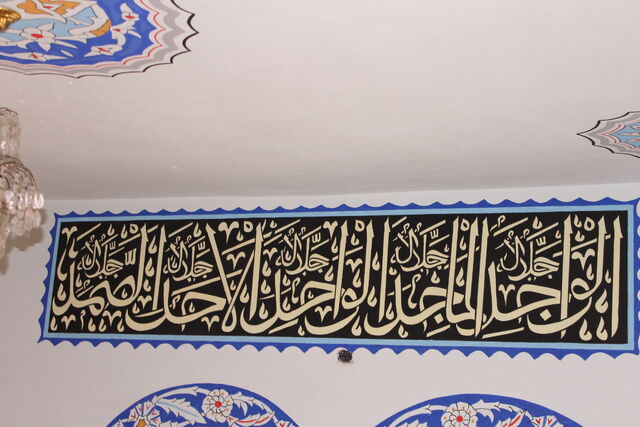 الواجد جل جلاله الماجد جل جلاله الواحد جل جلاله الأحد جل جلاله الصمد جل جلاله